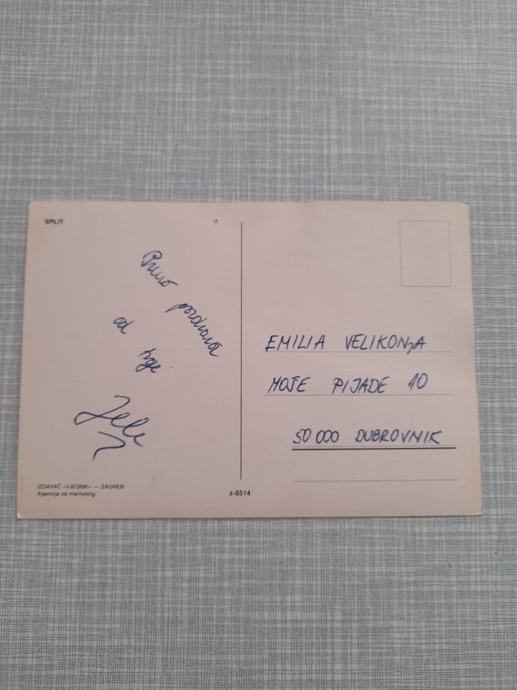 SPLIT
Puno pozdrava
od tvoje
Jele
EMILIA VELIKONJA
MOŠE PIJADE 10
50 000 DUBROVNIK
IZDAVAČ «VJESNIK» — ZAGREB
Agencija za marketing
z-6514